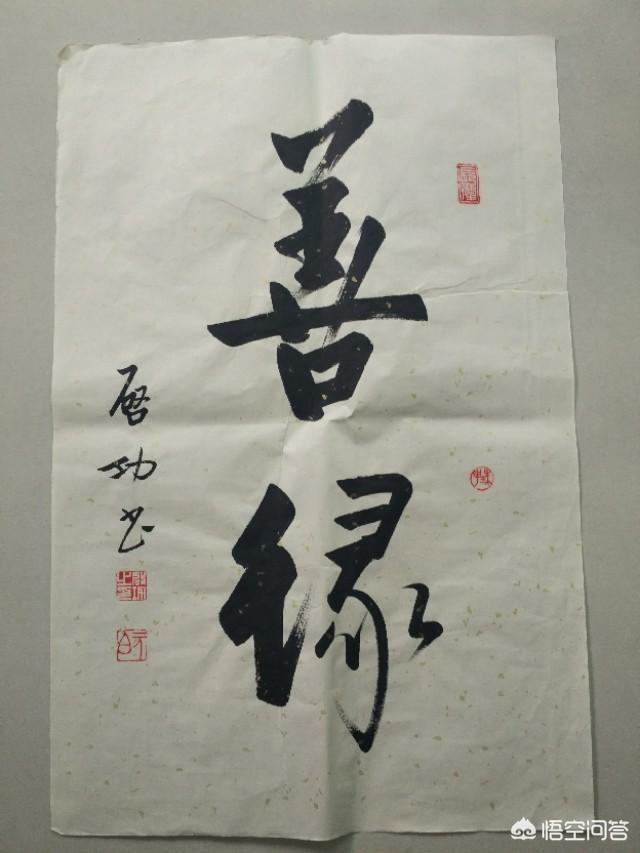 善缘
启功书
悟空问答